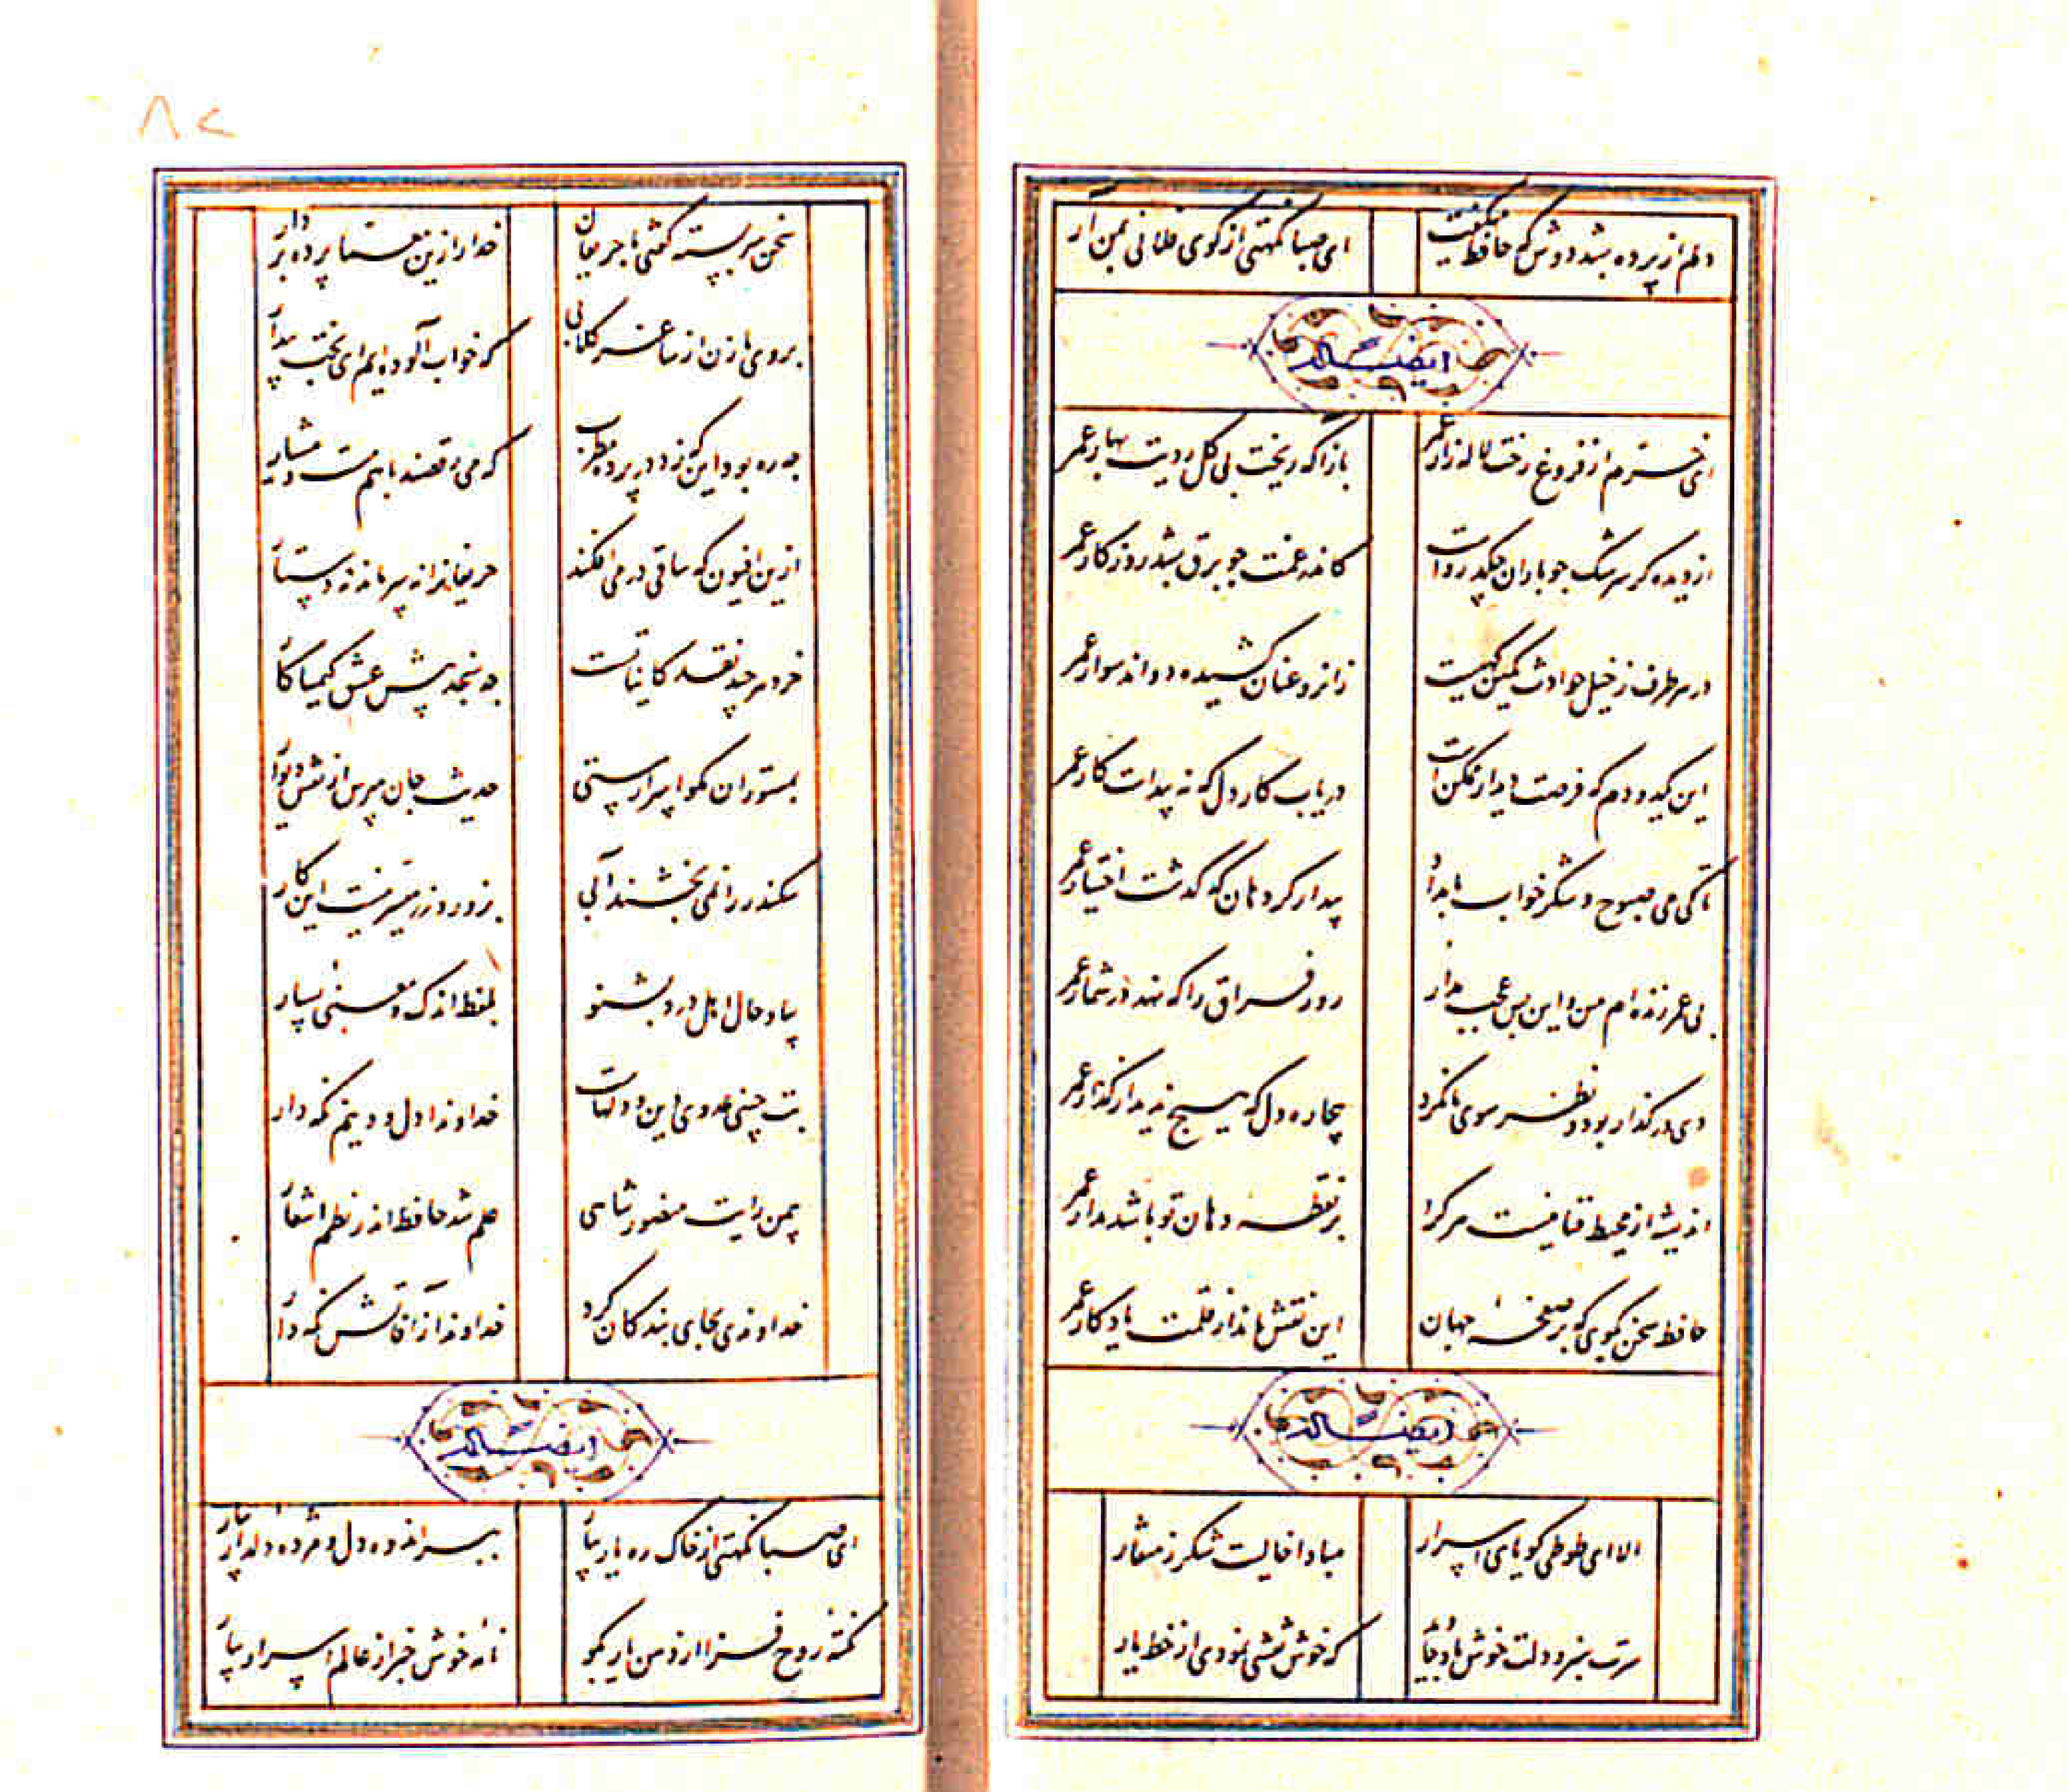 دلم از پرده بشد دوش که حافظ میگفت
ای صبا نکهتی از کوی فلانی بمن آر
ایضاً له
ای خرم از فروغ رخت لاله زار عمر
بازآ که ریخت بی گل رویت بهار عمر
از دیده گر سرشک چو باران چکد رواست
کاندر غمت چو برق بشد روزگار عمر
در هر طرف ز خیل حوادث کمین گهیست
زانرو عنان کشیده دواند سوار عمر
این یکدو دم که فرصت دیدار ممکن است
دریاب کار دل که نه پیداست کار عمر
تا کی می صبوح و شکر خواب بامداد
بیدار کرد هان که گذشت اختیار عمر
بی عمر زنده ام من و این بس عجب مدار
روز فراق را که نهد در شمار عمر
دی در گذار بود و نظر سوی ما نکرد
بیچاره دل که هیچ ندید از گذار عمر
اندیشه از محیط فنا نیست هر کرا
بر نقطه دهان تو باشد مدار عمر
حافظ سخن بگوی که بر صفحه جهان
این نقش ماند از قلمت یادگار عمر
ایضاً له
الا ای طوطی گویای اسرار
مبادا خالیت شکر ز منقار
سرت سبز و دلت خوش باد جاوید
که خوش نقشی نمودی از خط یار
۸۲
سخن سربسته گفتی با حریفان
خدارا زین معما پرده بردار
بروی ما زن از ساغر گلابی
که خواب آلوده ایم ای بخت بیدار
چه ره بود این که زد در پرده مطرب
که می رقصند با هم مست و هشیار
ازین افیون که ساقی در می افکند
حریفانرا نه سر ماند نه دستار
خرد هر چند نقد کاینات است
چه سنجد پیش عشق کیمیا کار
بمستوران مگو اسرار مستی
حدیث جان مپرس از نقش دیوار
سکندر را نمی بخشند آبی
بزور و زر میسر نیست این کار
بیا و حال اهل درد بشنو
بلفظ اندک و معنی بسیار
بت چینی عدوی این و آنست
خداوندا دل و دینم نگه دار
بیمن رایت منصور شاهی
علم شد حافظ اندر نظم اشعار
خداوندی بجای بندگان کرد
خداوندا ز آفاتش نگه دار
ایضاً له
ای صبا نکهتی از خاک ره یار بیار
ببر اندوه دل و مژده دلدار بیار
نکته روح فزا از دهن یار بگو
نامه خوش خبر از عالم اسرار بیار